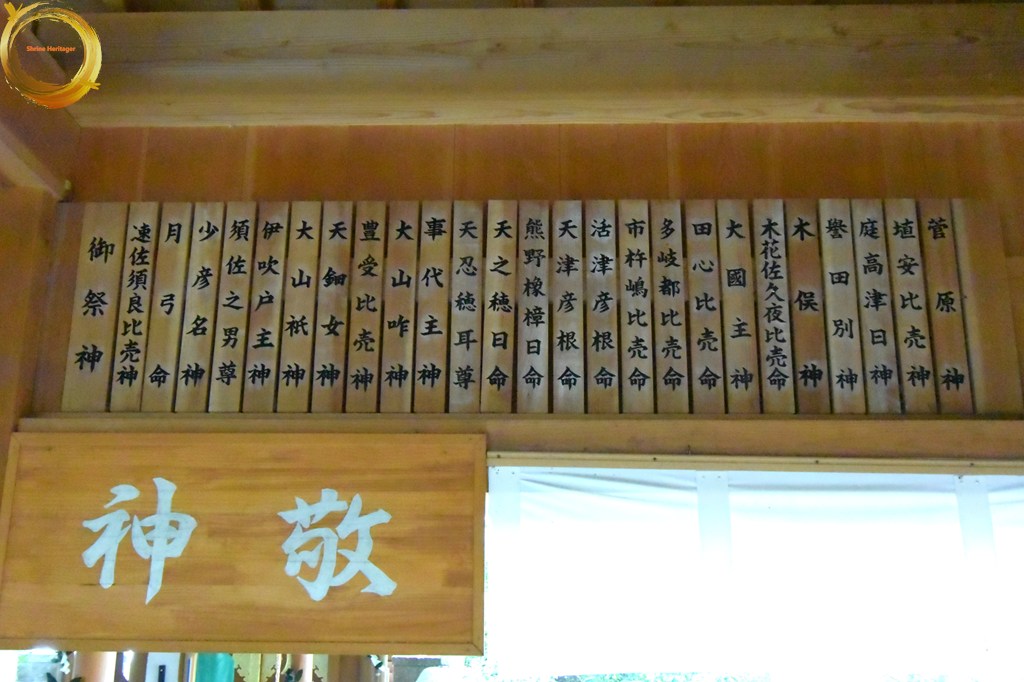 Shrine Heritager
御祭神
速佐須良比売神
月弓命
少彦名神
須佐之男尊
伊吹戸主神
大山祇神
天鈿女神
豊受比売神
大山咋神
事代主神
天忍穂耳尊
天之穂日命
熊野橡樟日命
天津彦根命
活津彦根命
市杵嶋比売命
多岐都比売命
田心比売命
大國主神
木花佐久夜比売命
木俣神
誉田別神
庭高津日神
埴安比売神
菅原神
敬神